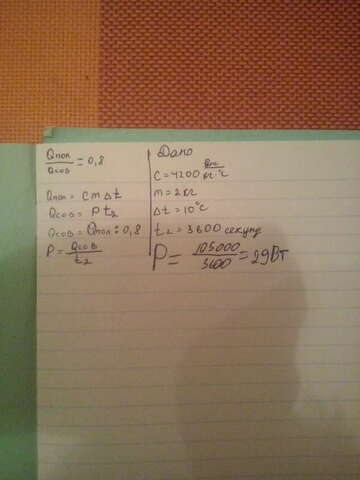 Qпол/Qсов = 0,8
Qпол = c m Δt
Qсов = P t₂
Qсов = Qпол : 0,8
P = Qсов/t₂
Дано
C = 4200 Дж/кг·°C
m = 2кг
Δt = 10°C
t₂ = 3600 секунд
P = 105000/3600 = 29Вт